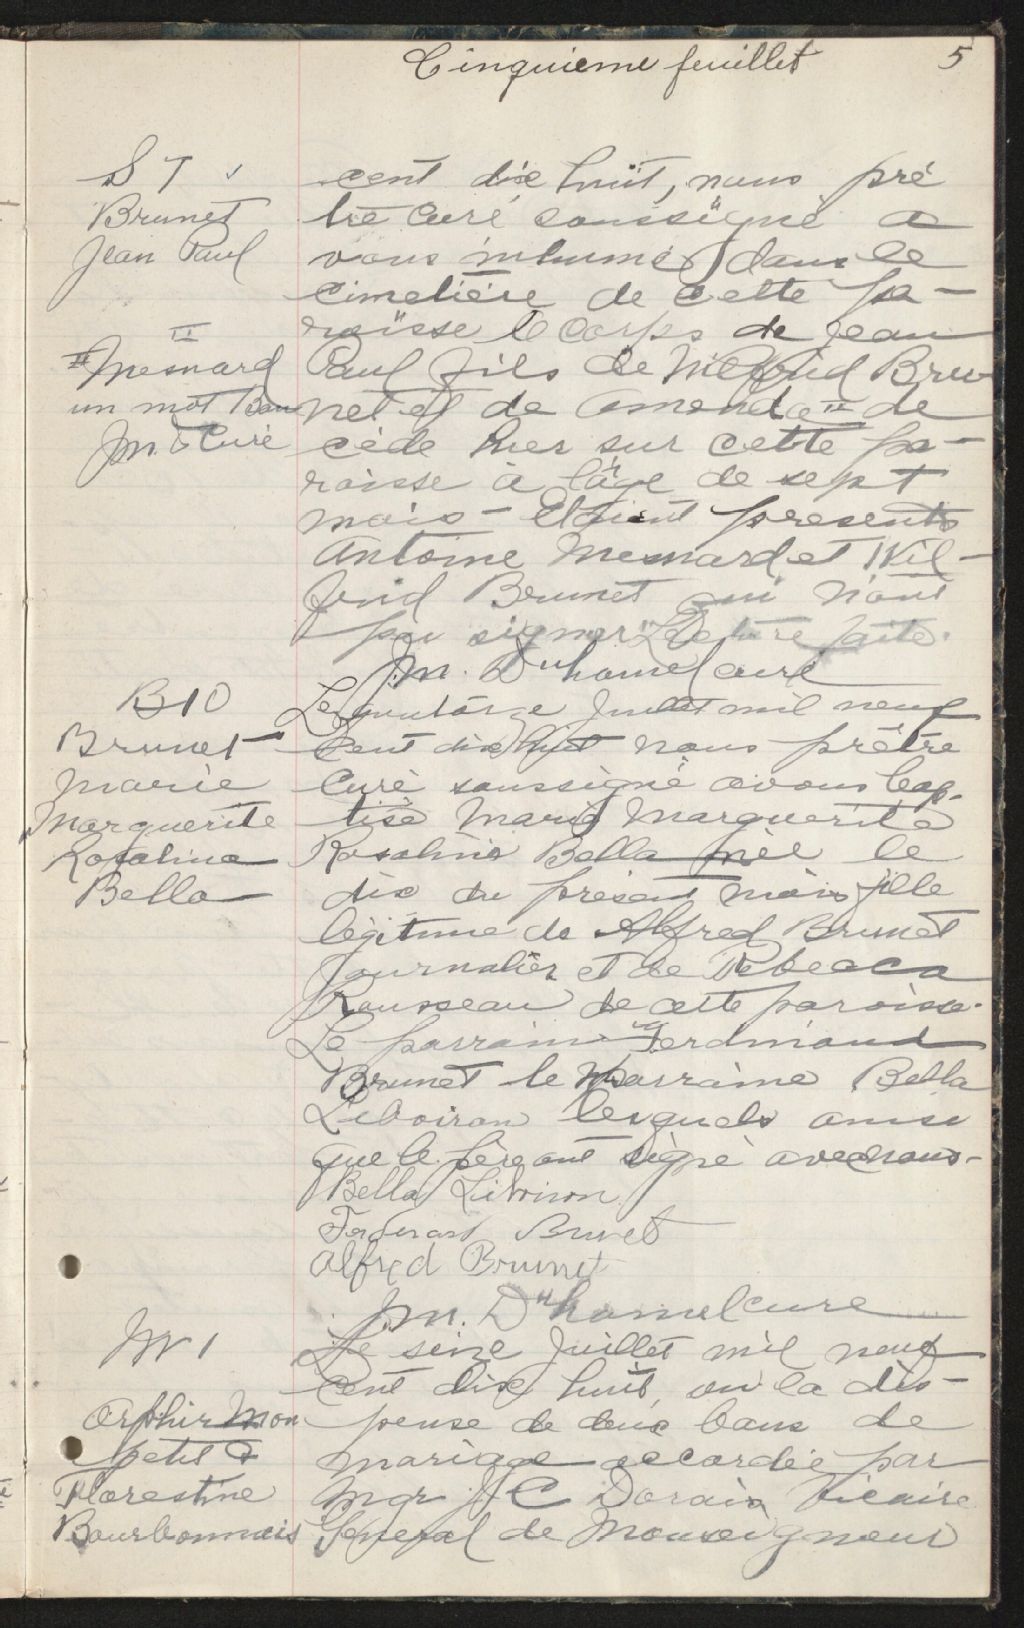 Cinquieme feuillet 5
S 7
Brunet
Jean Paul
"
" Mesnard
un mot bon
J M D Curé
cent dix huit, nous prê
tre curé soussigné a
vons inhumé dans le
cimetière de cette pa-
roisse le corps de Jean
Paul fils de Wilfrid Bru
net et de Amanda " de
cédé hier sur cette pa-
roisse à l'âge de sept
mois - Etaient presents
Antoine Mesnard et Wil-
frid Brunet qui n'ont
pu signer Lecture faite.
J.M. Duhamel curé
B 10
Brunet
Marie
Marguerite
Rosalina
Bella
Le quatorze Juillet mil neuf
cent dix huit nous prêtre
curé soussigné avons bap-
tisé Marie Marguerite
Rosalina Bella née le
dix du présent mois fille
légitime de Alfred Brunet
Journalier et de Rebecca
Rousseau de cette paroisse.
Le parrain Ferdinand
Brunet le Marraine Bella
Liboiron lesquels ainsi
que le père ont signé avec nous-
Bella Liboiron
Ferdinand Brunet
Alfred Brunet
J.M. Duhamel cure
M 1
Orphir Mon
petit &
Florestine
Bourbonnais
Le seize Juillet mil neuf
cent dix huit, vu la dis-
pense de deux bans de
mariage accordée par
Mgr J C Dorais Vicaire
Général de Monseigneur